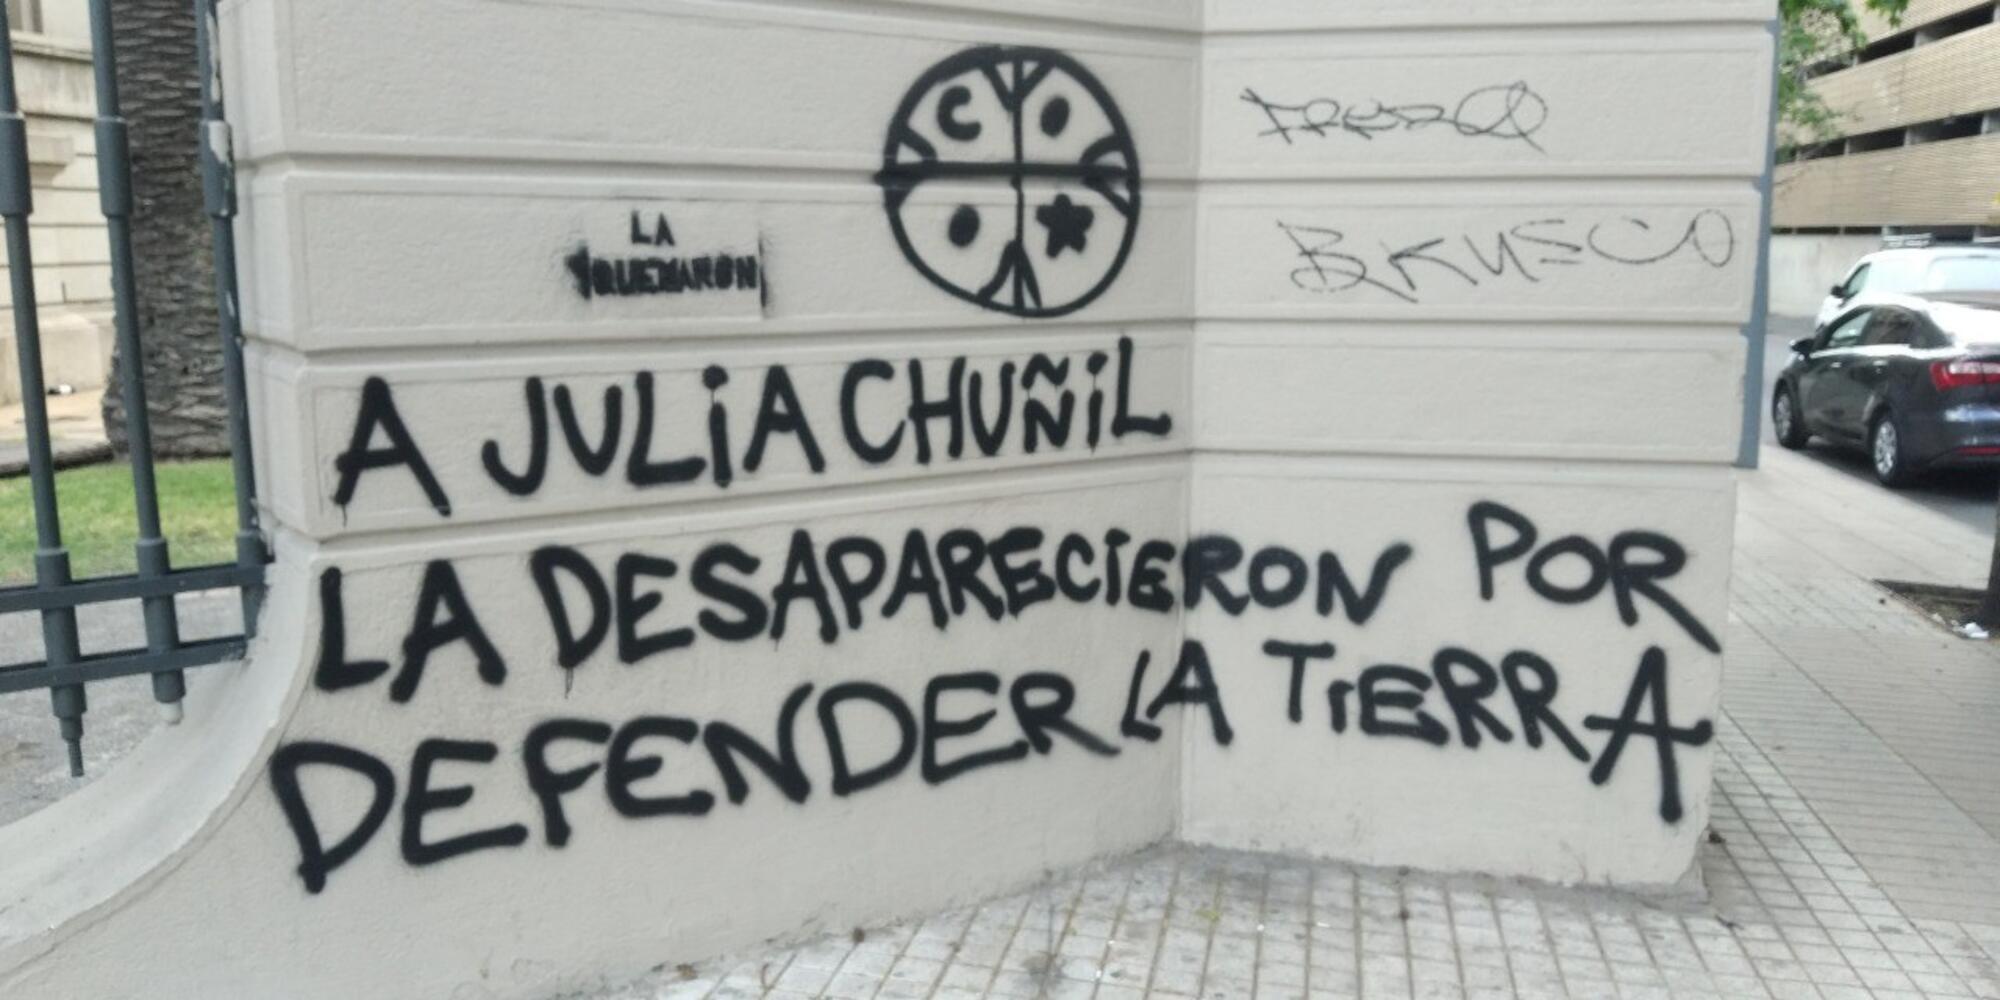 LA
QUEMARON
A JULIA CHUÑIL
LA DESAPARECIERON POR
DEFENDER LA TIERRA
BRUSCO